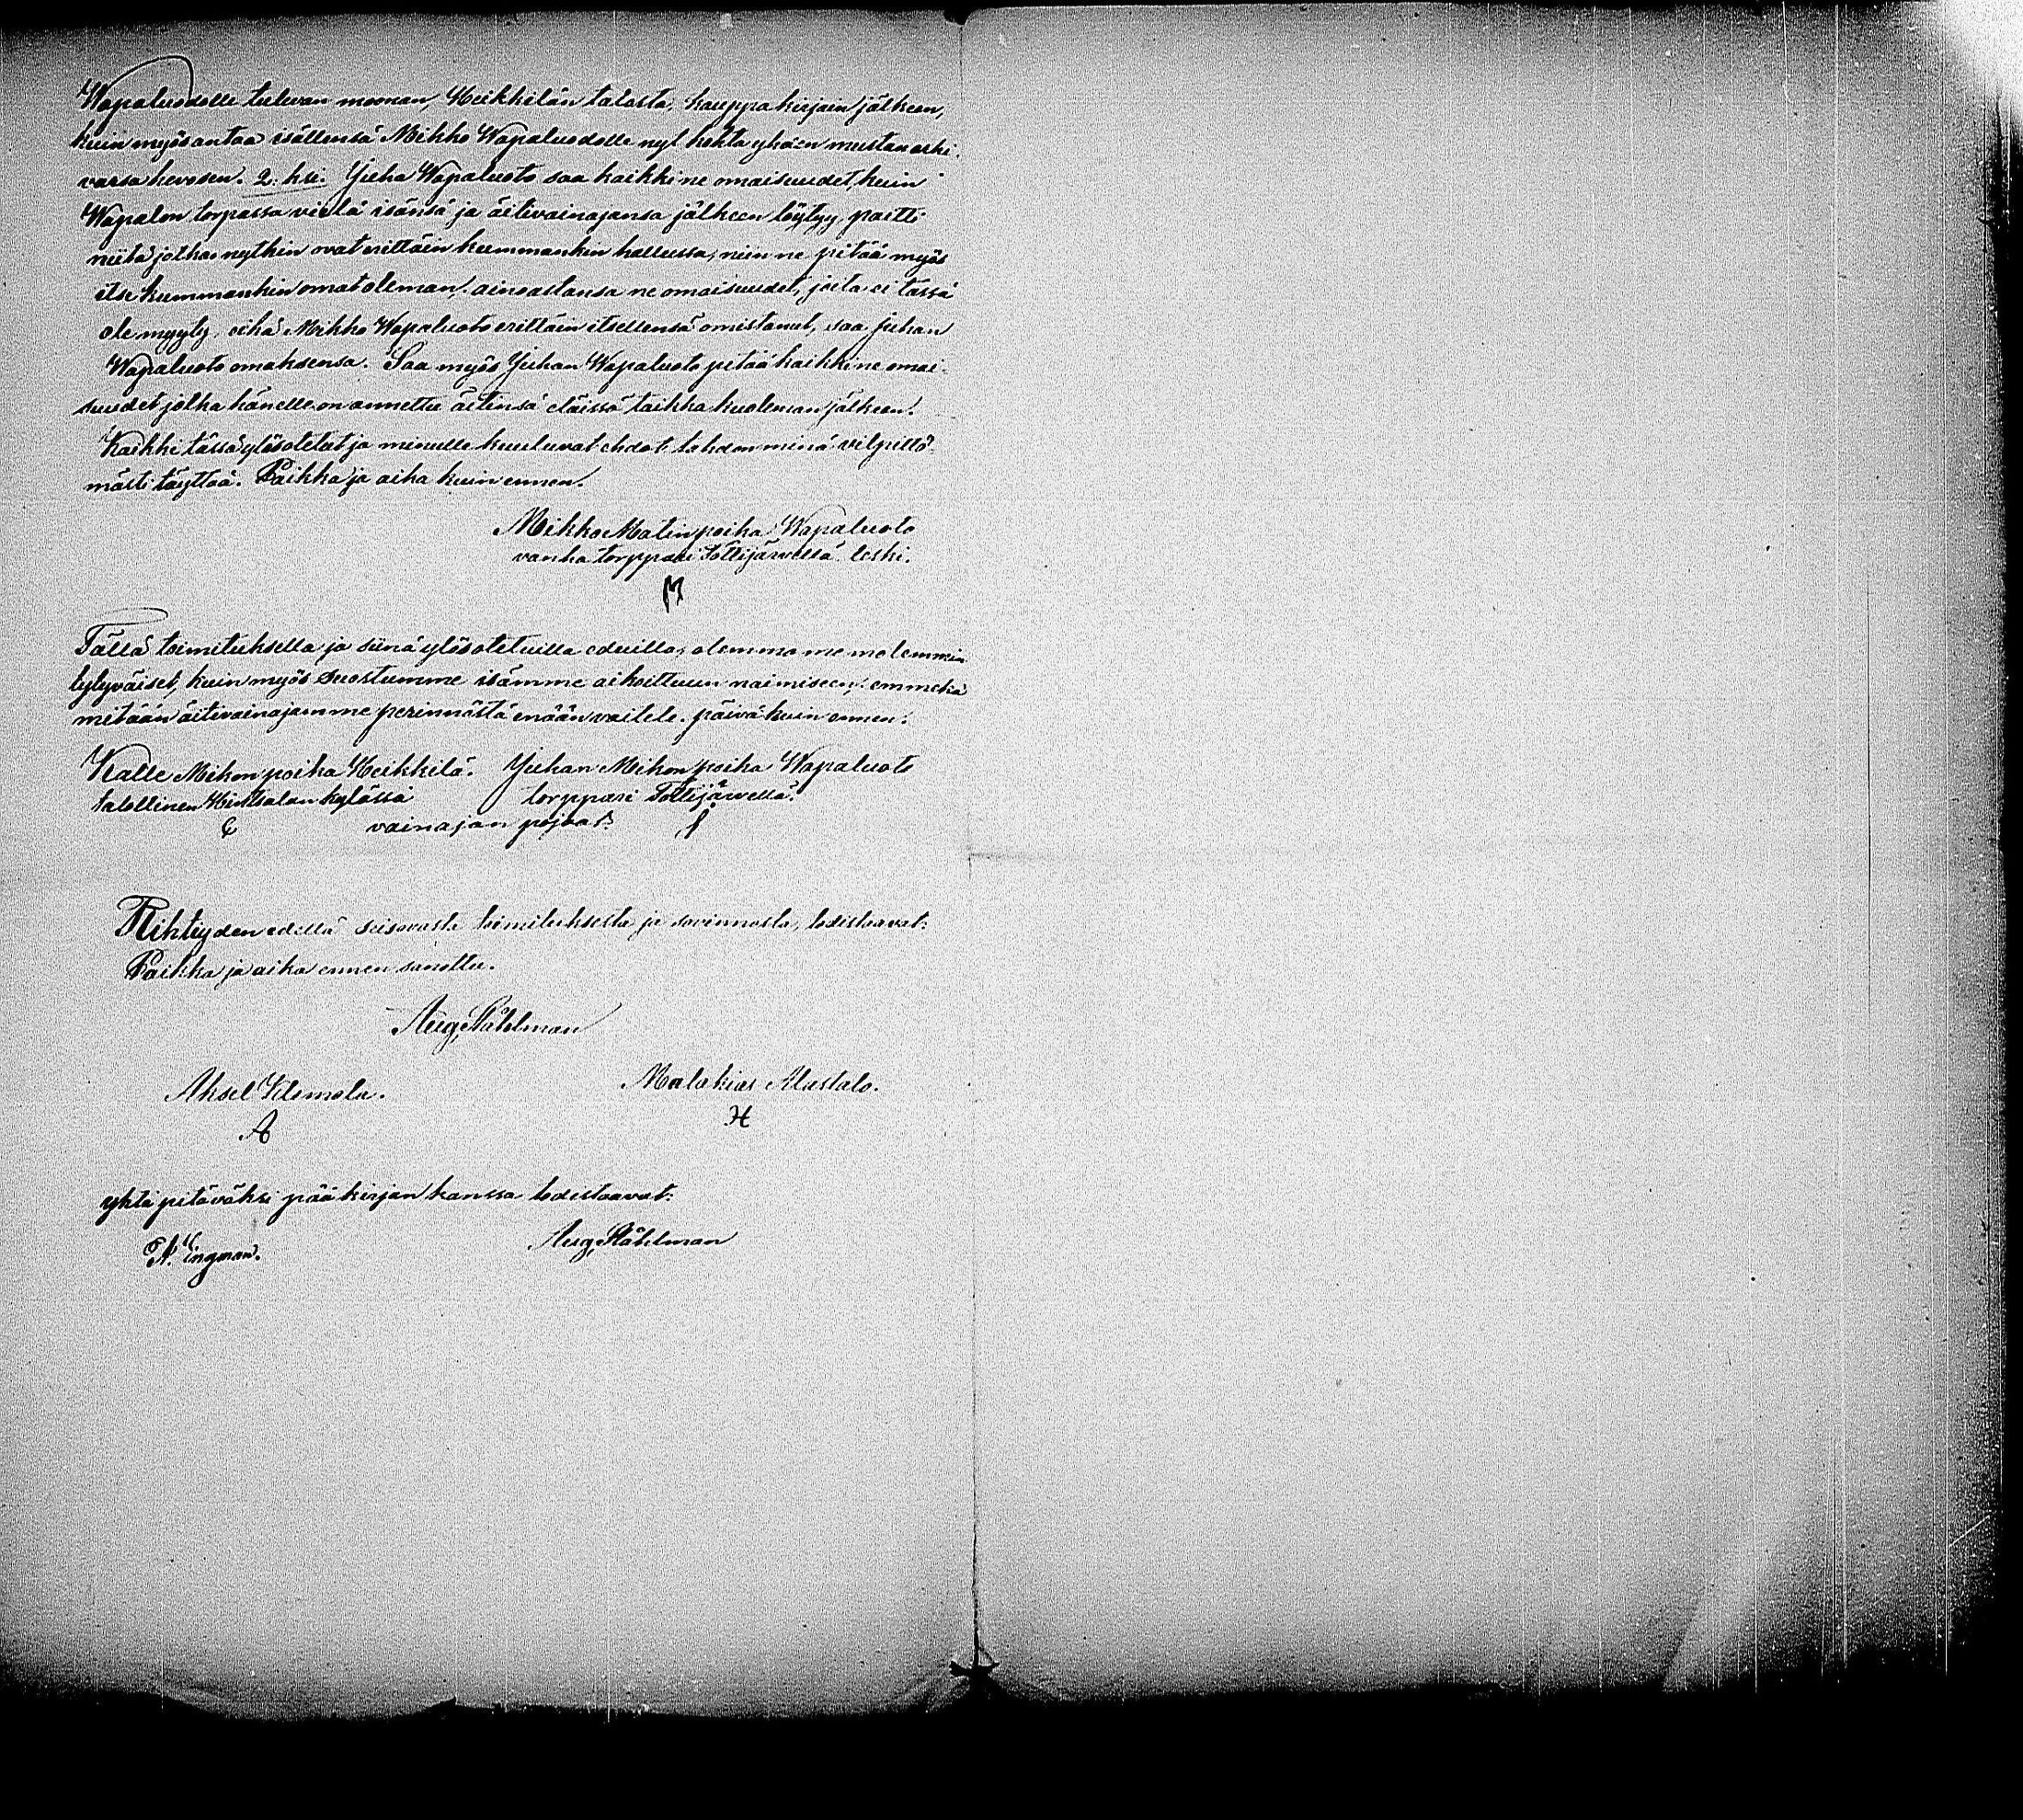 Wapaluodolle tulevan moonan, Heikkilän talosta, kauppakirjain jälkeen,
kuin myös antaa isällensä Mikko Wapaluodolle nyt kohta yhden mustan orhi-
varsa hevosen. 2:ksi. Juha Wapaluoto saa kaikki ne omaisuudet, kuin
Wapalon torpassa vielä isänsä ja äitivainajansa jälkeen löytyy, paitti
niitä jotka nytkin ovat erittäin kummankin hallussa, niin ne pitää myös
itse kummankin omat oleman, ainoastansa ne omaisuudet, joita ei tässä
ole myyty, eikä Mikko Wapaluoto erittäin itsellensä omistanut, saa Juhan
Wapaluoto omaksensa. Saa myös Juhan Wapaluoto pitää kaikki ne omai-
suudet jotka hänelle on annettu äitinsä eläissä taikka kuoleman jälkeen.
Kaikki tässä ylösotetut ja minulle kuuluvat ehdot tahdon minä vilpittö-
mästi täyttää. Paikka ja aika kuin ennen.
Mikko Matinpoika Wapaluoto
vanha torppari Tottijärvellä leski.
M
Tällä toimituksella ja siinä ylösotetuilla eduilla, olemma me molemmin
tytyväiset, kuin myös suostumme isämme aikoittuun naimiseen, emmekä
mitään äitivainajamme perinnöstä enään vaitele. päivä kuin ennen.
Kalle Mikonpoika Heikkilä. Juhan Mikonpoika Wapaluoto
talollinen kylässä torppari Tottijärvellä.
vainajan pojat.
Rihtiyden edellä seisovasta toimituksesta ja sovinnosta, todistaavat:
Paikka ja aika ennen sanottu.
Aug. Ståhlman
Aksel Klemola. Malakias Alastalo.
A H
yhtä pitäväksi pääkirjan kanssa todistaavat:
A. Ingman. Aug. Ståhlman